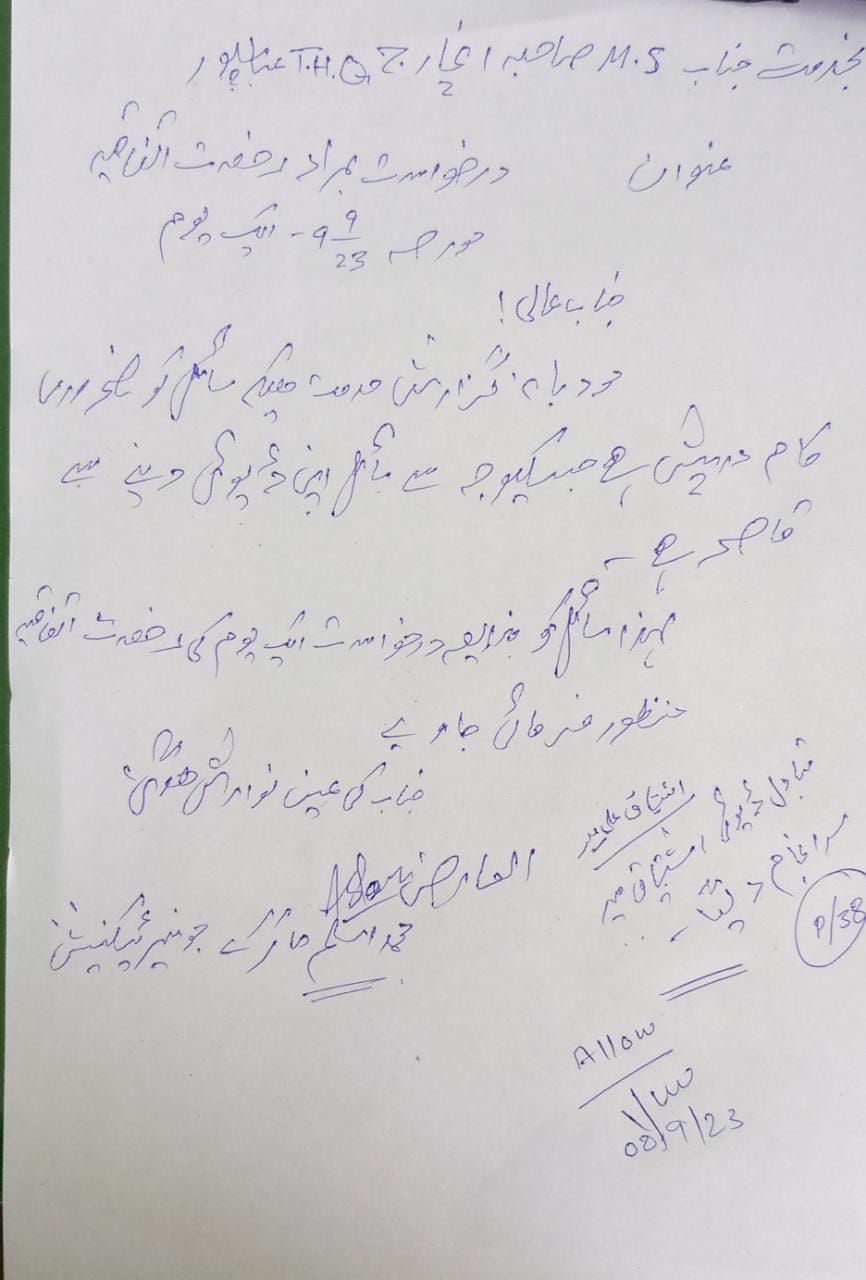 بخدمت جناب M.S صاحبہ انچارج T.H.Q
عنوان درخواست بمراد رخصت اتفاقیہ
مورخہ 9 9/23 - ایک یوم
جناب عالی!
مودبانہ گزارش خدمت ہیکہ سائل کو ضروری
کام درپیش ہے جسکیوجہ سے سائل اپنی ڈیوٹی دینے سے
قاصر ہے -
لہذا سائل کو بذریعہ درخواست ایک یوم کی رخصت اتفاقیہ
منظور فرمائی جاوے
جناب کی عین نوازش ہوگی
العارض
محمد اسلم جونیر ٹیکنیشن
متبادل ڈیوٹی اشتیاق
سرانجام دیگا -
اشتیاق علی
P/38
Allow
08/9/23